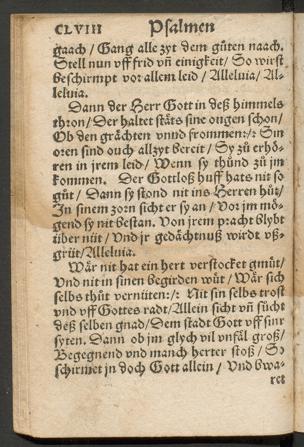 CLVIII Psalmen
gaach / Gang alle zyt dem gůten naach.
Stell nun vff frid vñ einigkeit / So wirst
beschirmpt vor allem leid / Alleluia / Al-
leluia.
Dann der Herr Gott in deß himmels
thron / Der haltet stäts sine ougen schon /
Ob den grächten vnnd frommen:/: Sin
oren sind ouch allzyt bereit / Sy zů erhö-
ren in jrem leid / Wenn sy thůnd zů jm
kommen. Der Gottloß huff hats nit so
gůt / Dann sy stond nit ins Herren hůt /
In sinem zorn sicht er sy an / Vor jm mö-
gend sy nit bestan. Von jrem pracht blybt
über nüt / Vnd jr gedächtnuß wirdt vß-
grüt / Alleluia.
Wär nit hat ein hert verstocket gmüt /
Vnd nit in sinen begirden wüt / Wär sich
selbs thůt vernüten:/: Nit sin selbs trost
vnd vff Gottes radt / Allein sicht vñ sůcht
deß selben gnad / Dem stadt Gott vff sinr
syten. Dann ob jm glych vil vnfäl groß /
Begegnend vnd manch herter stoß / So
schirmet jn doch Gott allein / Vnd bwa-
ret